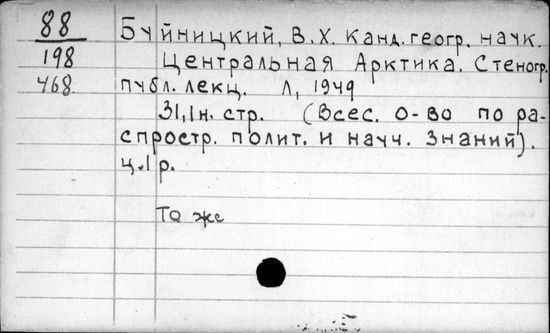 88
198
468.
Буйницкий, В.Х. Канд. геогр. наук.
Центральная Арктика. Стеногр.
публ. лекц. Л, 1949
31,1н. стр. (Всес. о-во по ра-
спростр. полит. и науч. знаний).
ц. 1 р.
То же